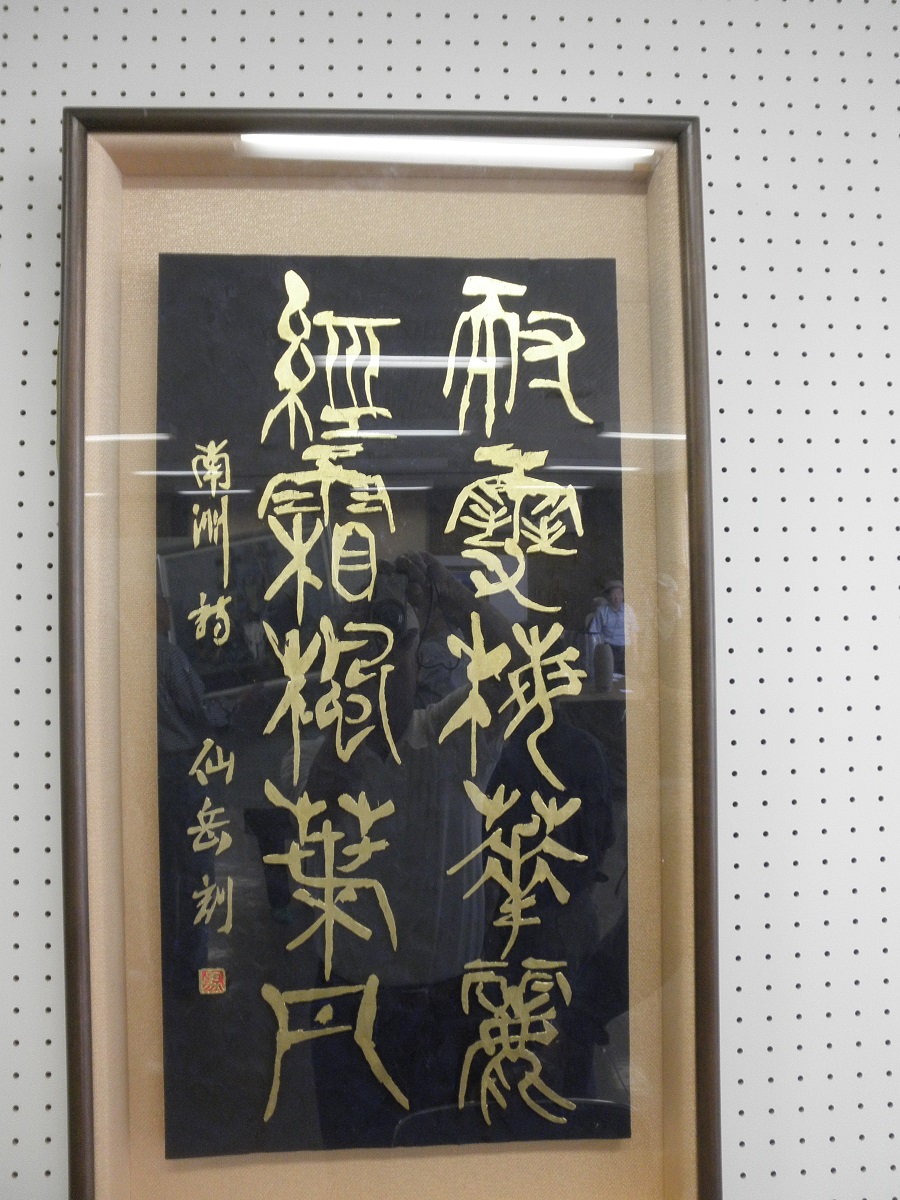 耐雪梅華麗
經霜楓葉丹
南洲詩 仙岳刻